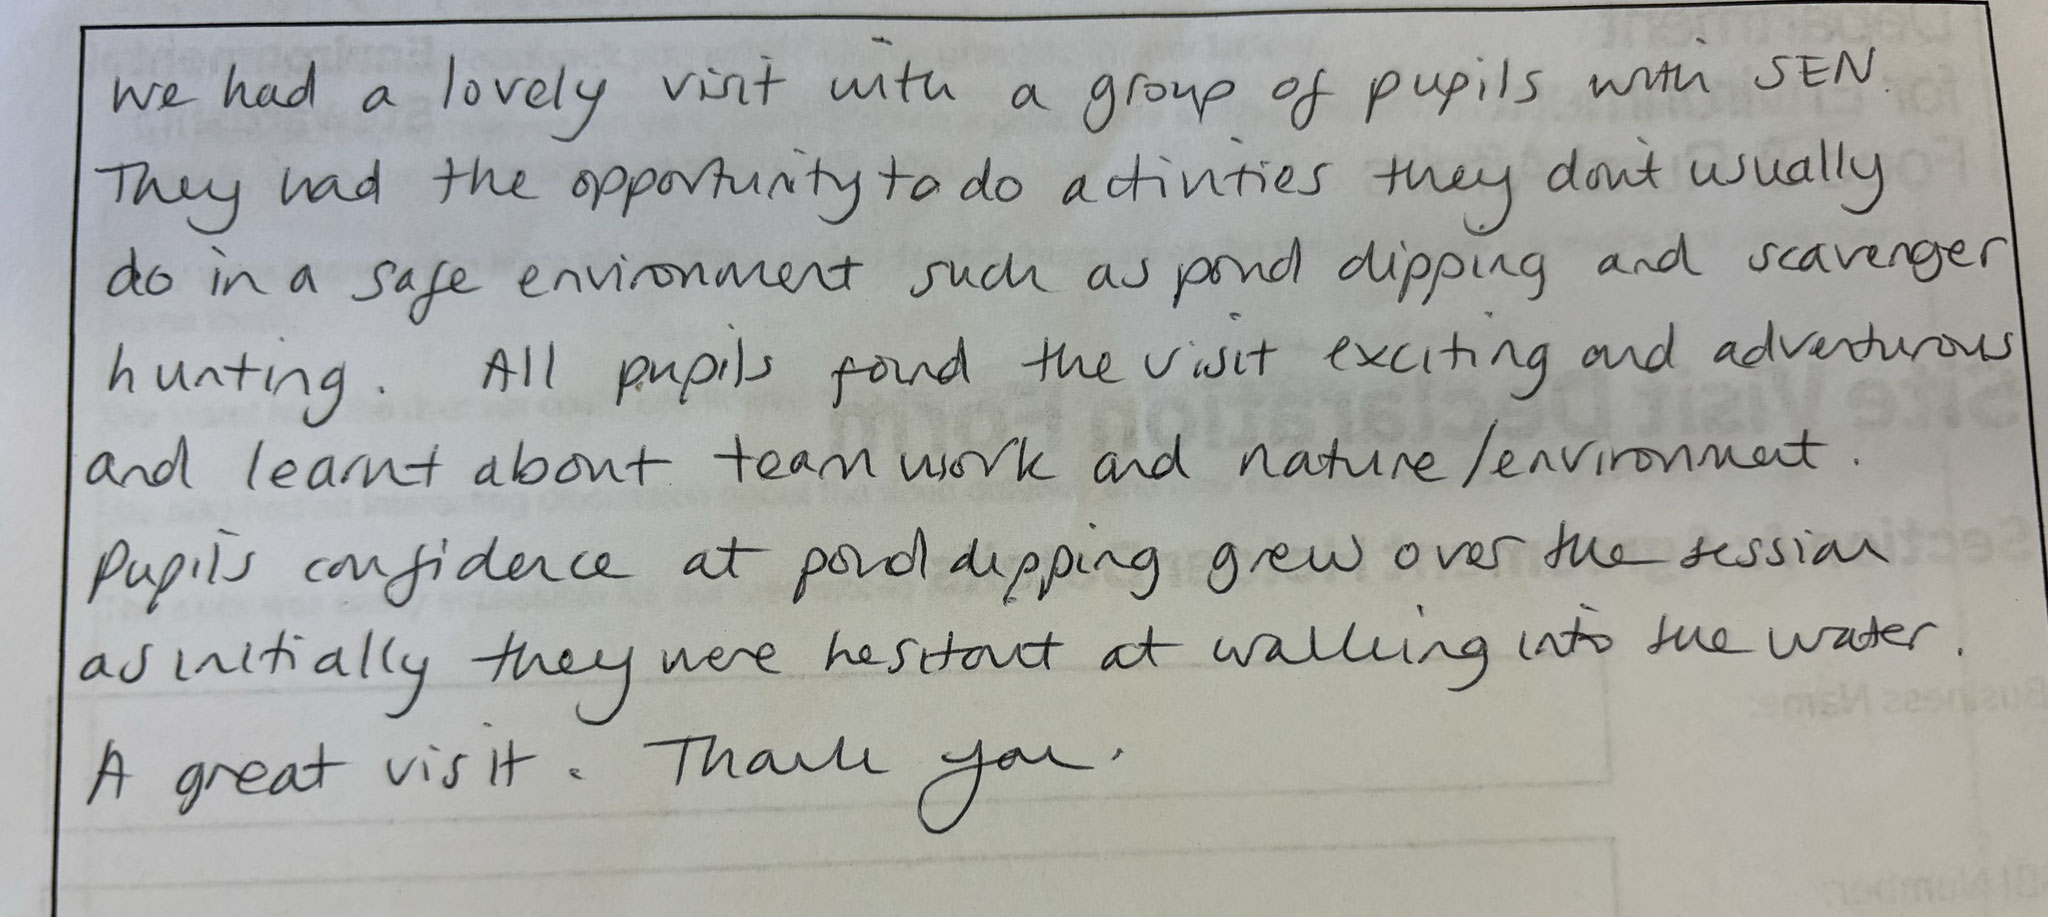 We had a lovely visit with a group of pupils with SEN.
They had the opportunity to do activities they don't usually
do in a safe environment such as pond dipping and scavenger
hunting. All pupils found the visit exciting and adventurous
and learnt about team work and nature/environment.
Pupils confidence at pond dipping grew over the session
as initially they were hesitant at walking into the water.
A great visit. Thank you.
Site Visit Declaration Form
Business Name: